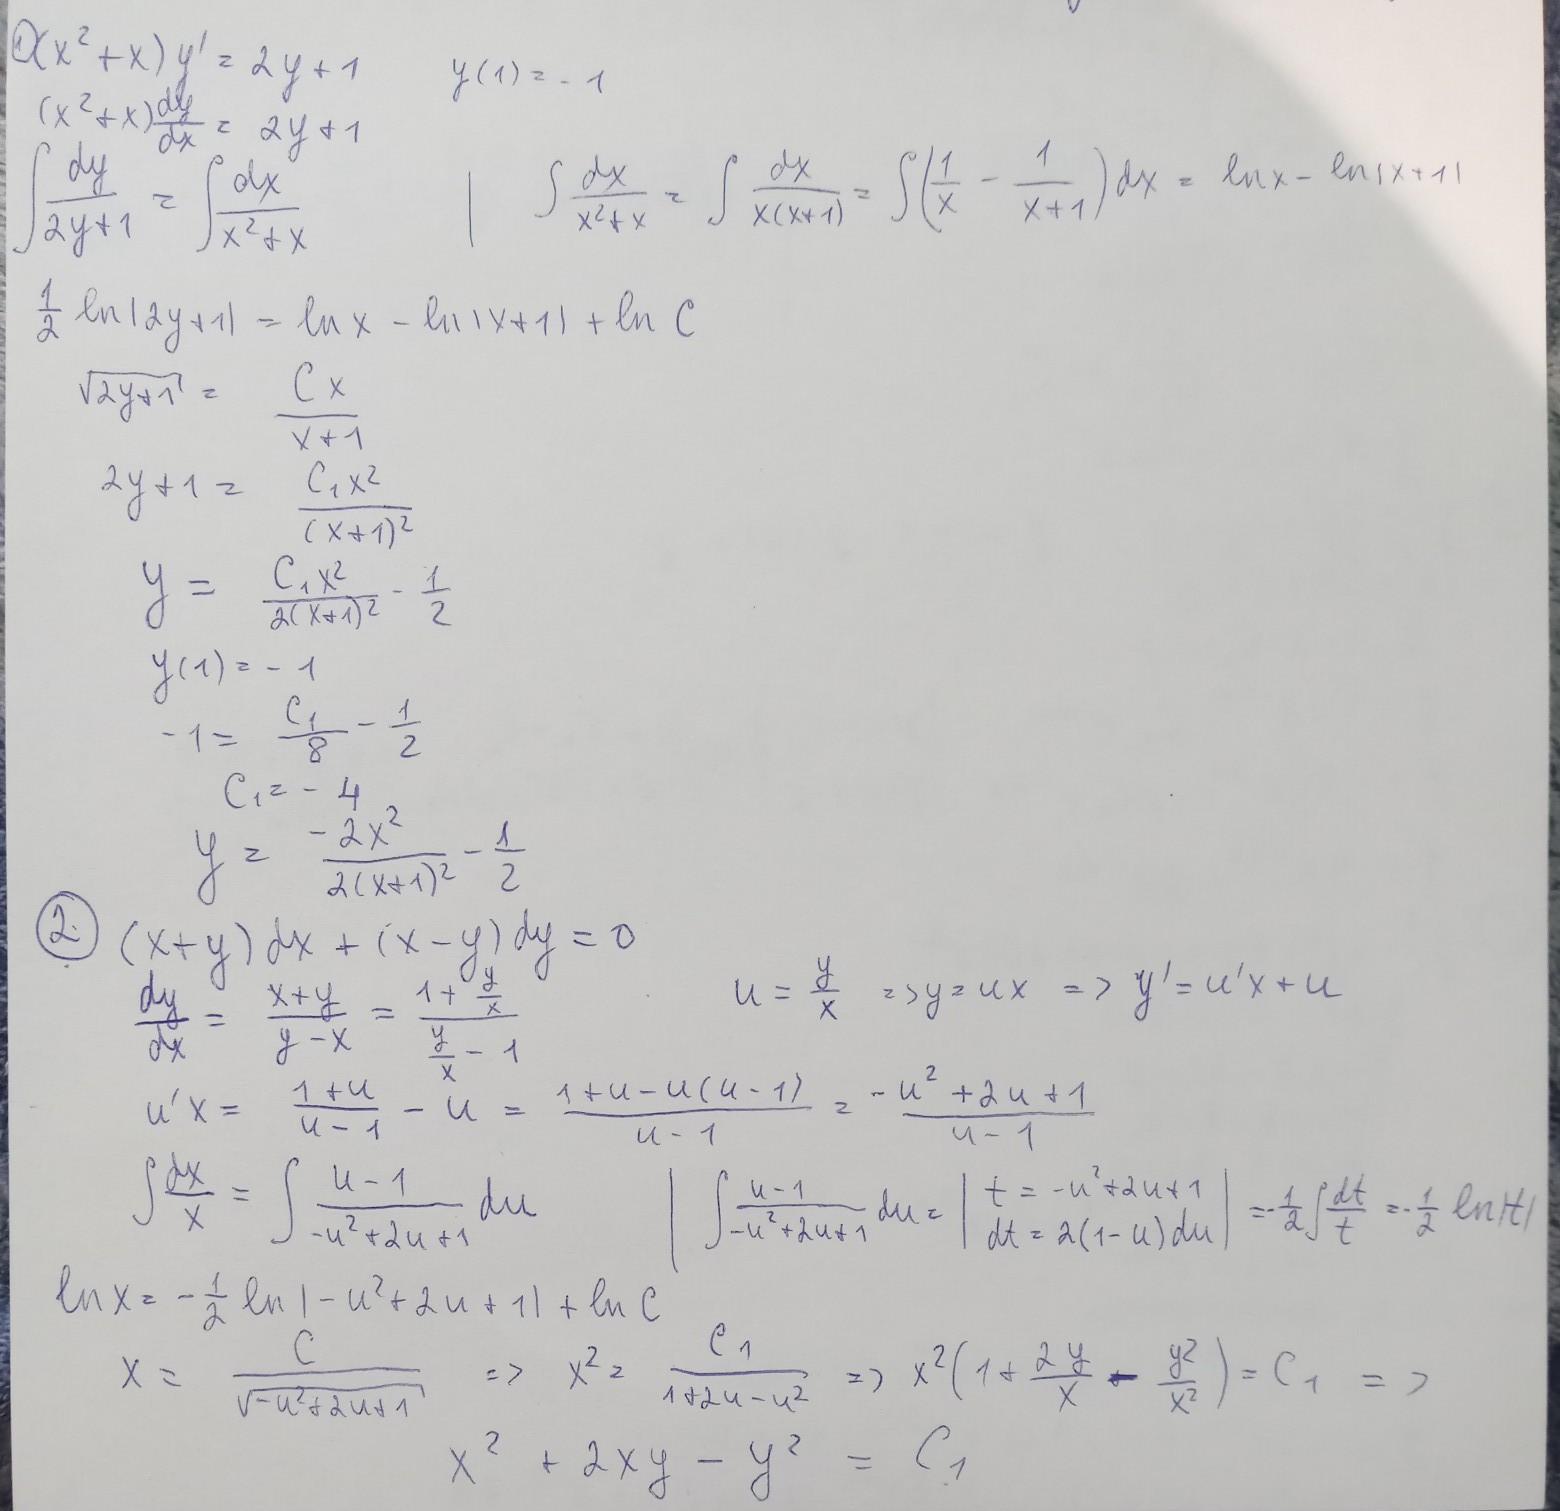 1) (x² + x) y' = 2y + 1    y(1) = - 1
(x² + x) dy/dx = 2y + 1
∫ dy/(2y+1) = ∫ dx/(x² + x)  |  ∫ dx/(x² + x) = ∫ dx/(x(x+1)) = ∫ (1/x - 1/(x+1)) dx = ln x - ln|x+1|
1/2 ln|2y+1| = ln x - ln|x+1| + ln C
√(2y+1) = Cx/(x+1)
2y+1 = C₁x²/(x+1)²
y = C₁x²/(2(x+1)²) - 1/2
y(1) = - 1
-1 = C₁/8 - 1/2
C₁ = - 4
y = -2x²/(2(x+1)²) - 1/2
2. (x+y) dx + (x-y) dy = 0
dy/dx = (x+y)/(y-x) = (1 + y/x)/(y/x - 1)    u = y/x => y = ux => y' = u'x + u
u'x = (1+u)/(u-1) - u = (1+u-u(u-1))/(u-1) = (-u² + 2u + 1)/(u-1)
∫ dx/x = ∫ (u-1)/(-u²+2u+1) du  |  ∫ (u-1)/(-u²+2u+1) du = | t = -u²+2u+1 dt = 2(1-u)du | = -1/2 ∫ dt/t = -1/2 ln|t|
ln x = -1/2 ln|-u²+2u+1| + ln C
x = C/√(-u²+2u+1) => x² = C₁/(1+2u-u²) => x²(1 + 2y/x - y²/x²) = C₁ =>
x² + 2xy - y² = C₁